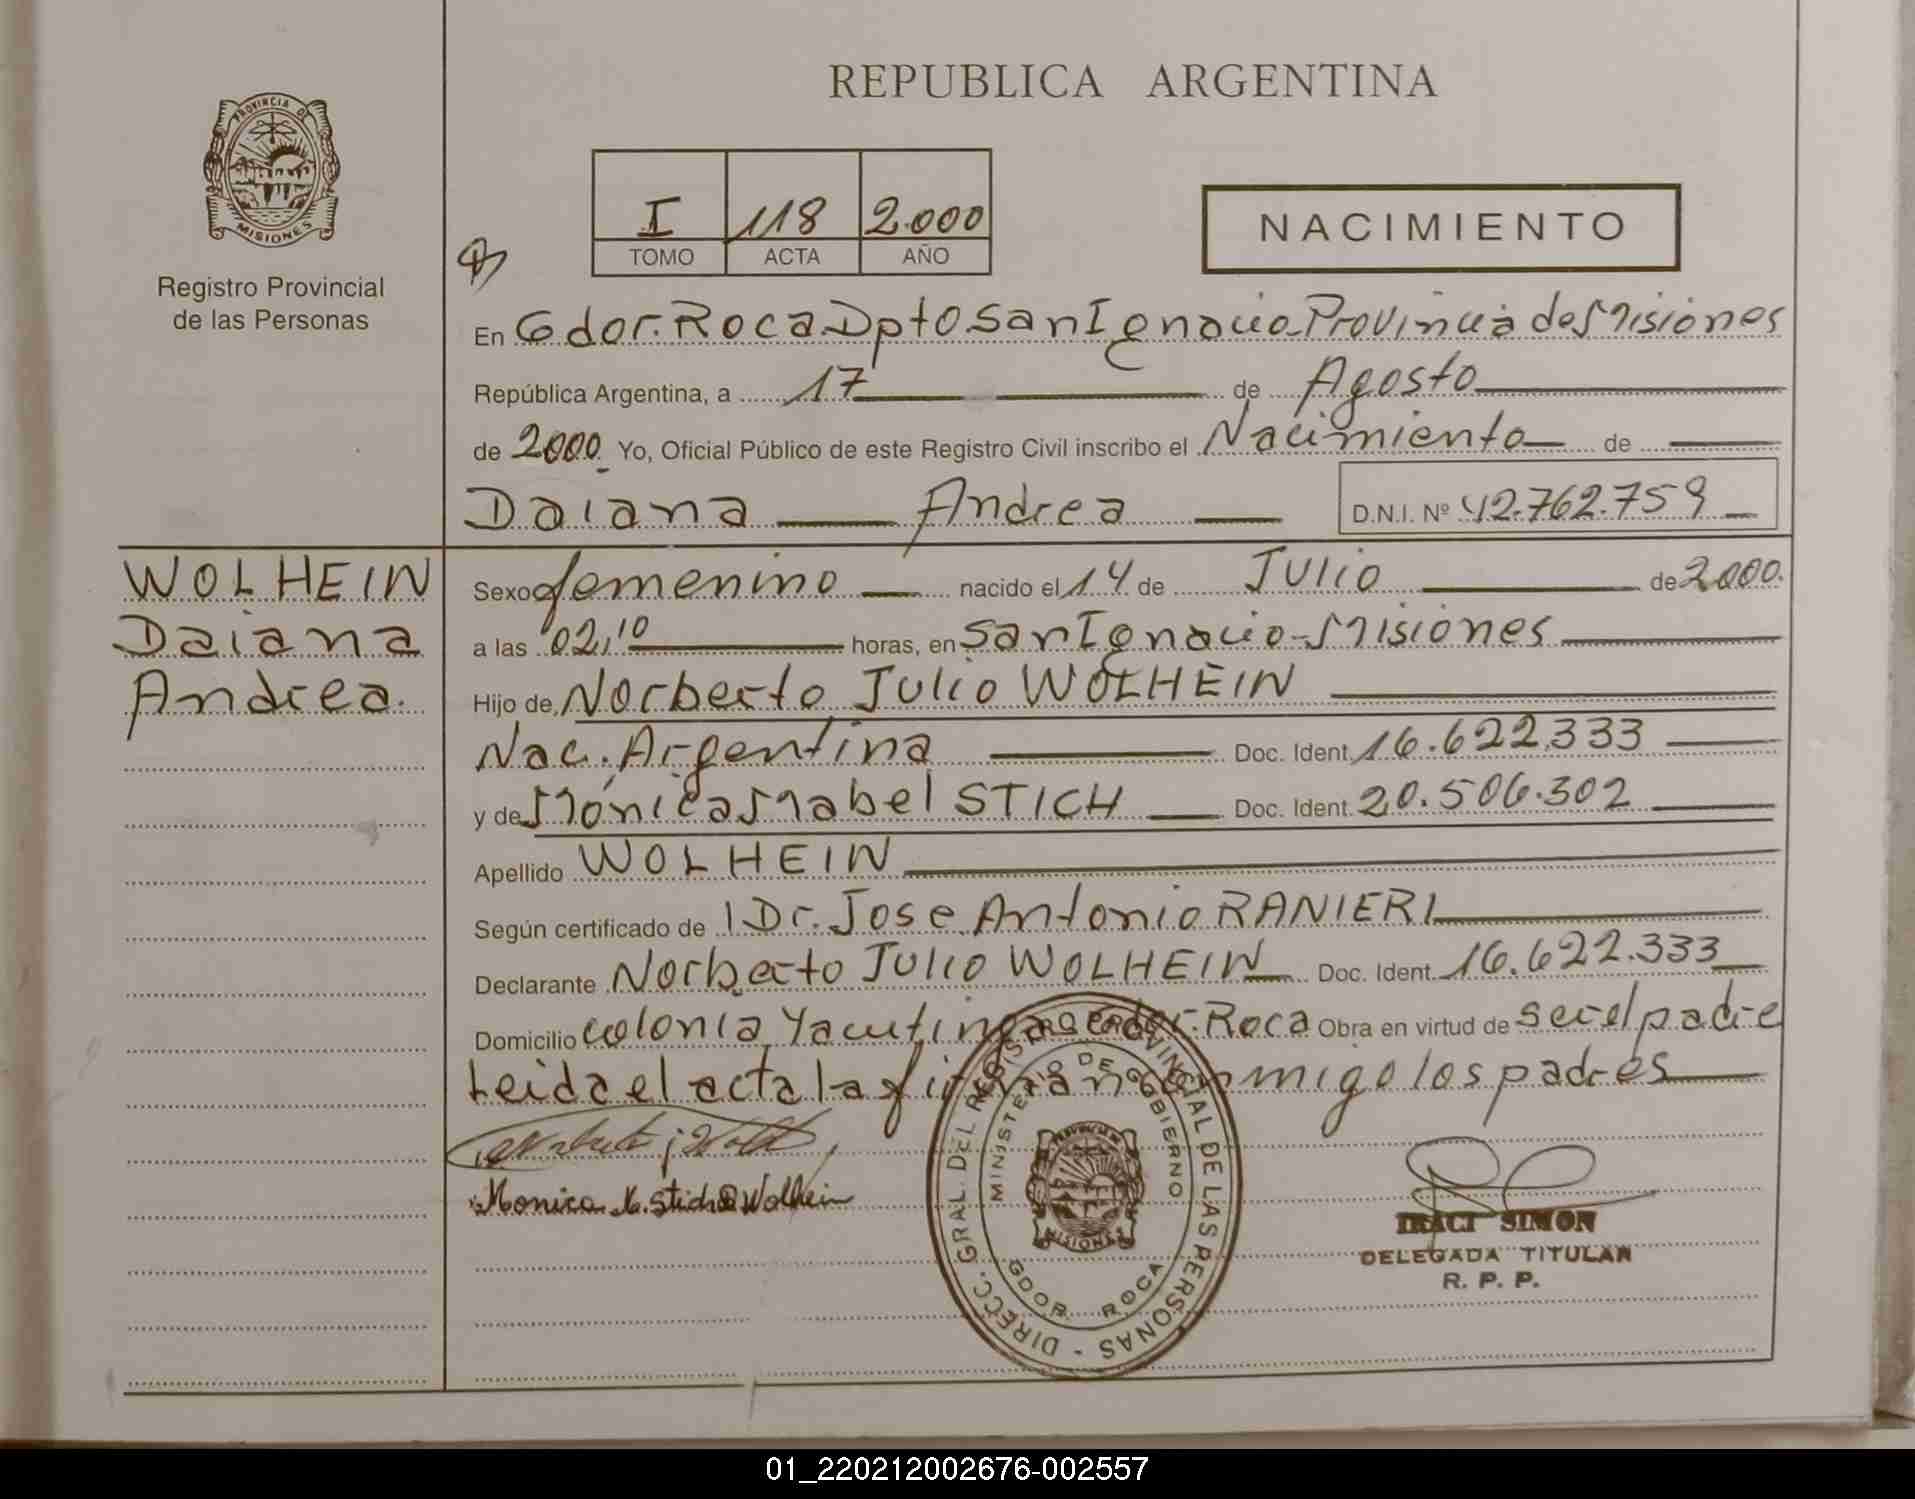 REPUBLICA ARGENTINA
PROVINCIA DE
MISIONES
Registro Provincial
de las Personas
I 118 2.000
TOMO ACTA AÑO
NACIMIENTO
En Gdor. Roca Dpto San Ignacio Provincia de Misiones
República Argentina, a 17 de Agosto
de 2000 Yo, Oficial Público de este Registro Civil inscribo el Nacimiento de
Daiana Andrea D.N.I. Nº 42.762.759
WOLHEIN
Daiana
Andrea.
Sexo femenino nacido el 14 de Julio de 2000.
a las 02,10 horas, en San Ignacio - Misiones
Hijo de Norberto Julio WOLHEIN
Nac. Argentina Doc. Ident. 16.622.333
y de Mónica Mabel STICH Doc. Ident. 20.506.302
Apellido WOLHEIN
Según certificado de Dr. Jose Antonio RANIERI
Declarante Norberto Julio WOLHEIN Doc. Ident. 16.622.333
Domicilio colonia Yacutinga Gdor. Roca Obra en virtud de ser el padre
Leida el acta la firman conmigo los padres
Monica M. Stich de Wolhein
DIRECC. GRAL. DEL REGISTRO PROVINCIAL DE LAS PERSONAS -
MINISTERIO DE GOBIERNO
PROVINCIA DE
MISIONES
GDOR. ROCA
IRACI SIMON
DELEGADA TITULAR
R. P. P.
01_220212002676-002557